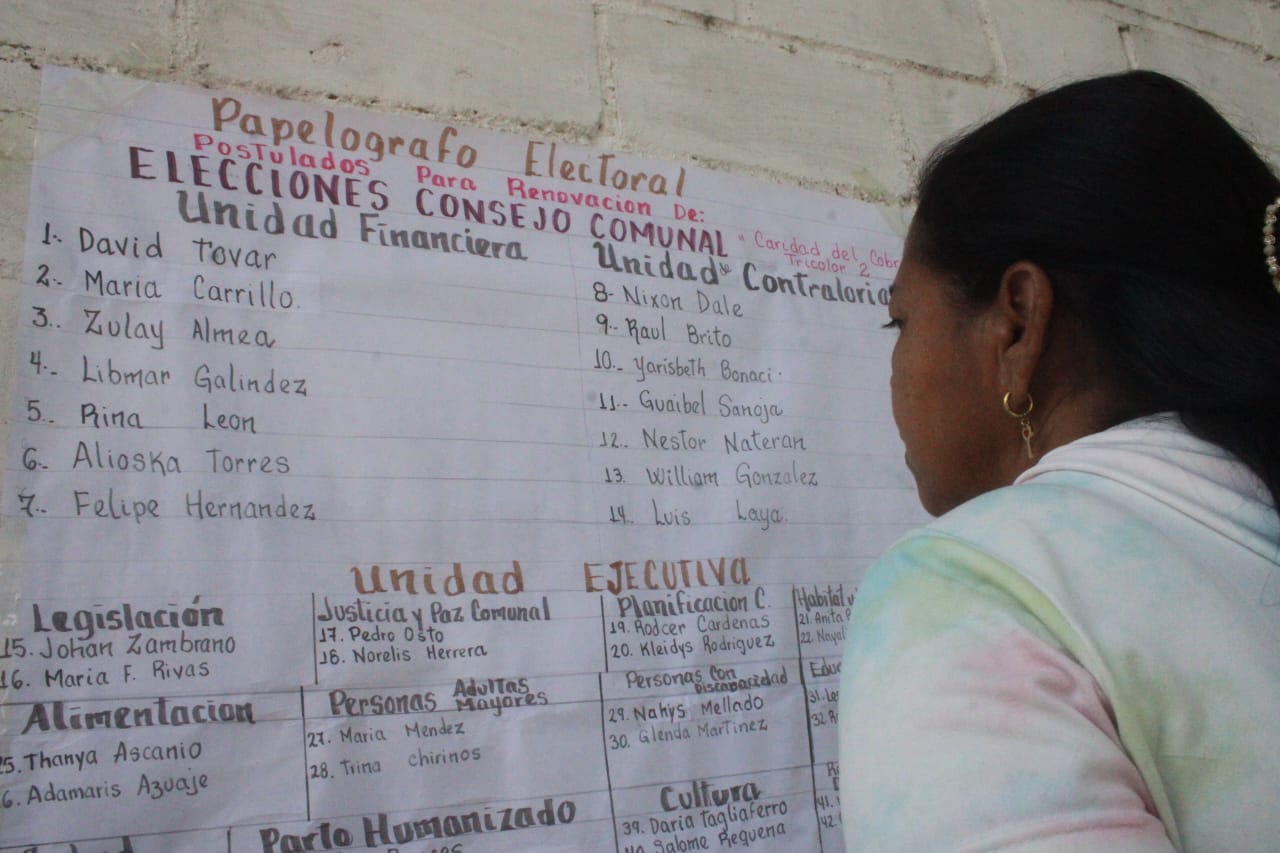 Papelografo Electoral
Postulados Para Renovacion De:
ELECCIONES CONSEJO COMUNAL "Caridad del
Tricolor 2
Unidad Financiera
1.- David Tovar
2.- Maria Carrillo.
3.. Zulay Almea
4.- Libmar Galindez
5.. Rina Leon
6.- Alioska Torres
7.- Felipe Hernandez
Unidad de Contraloria
8- Nixon Dale
9.- Raul Brito
10.- Yarisbeth Bonaci.
11.- Guaibel Sanoja
12.. Nestor Nateran
13. William Gonzalez
14.. Luis Laya.
Unidad EJECUTIVA
Legislación
15. Johan Zambrano
16. Maria F. Rivas
Justicia y Paz Comunal
17. Pedro Osto
18. Norelis Herrera
Planificacion C.
19. Rodcer Cardenas
20. Kleidys Rodriguez
Habitat y
21. Anita
22.
Alimentacion
5. Thanya Ascanio
6. Adamaris Azuaje
Personas Adultas Mayores
27. Maria Mendez
28. Trina chirinos
Personas Con Discapacidad
29. Nahys Mellado
30. Glenda Martinez
31.
32.
Parto Humanizado
Cultura
39. Daria Tagliaferro
40. Salome Requena
41.
42.